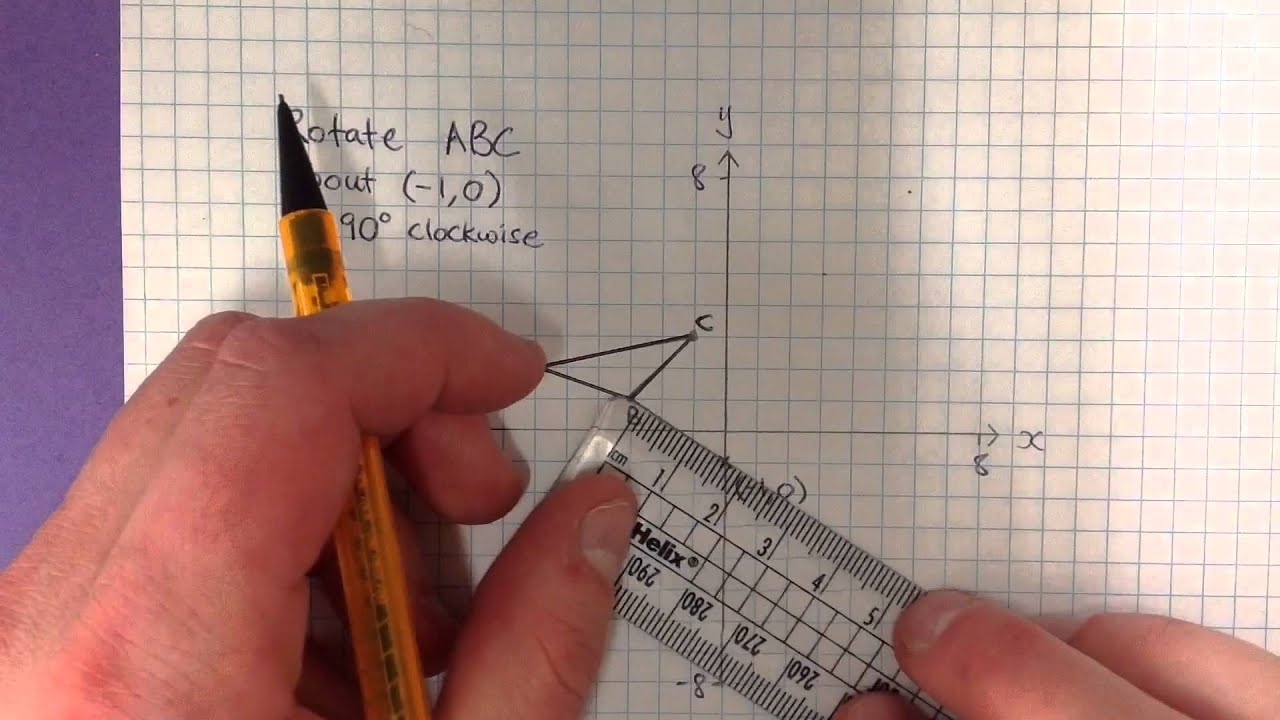 Rotate ABC
(-1,0)
90° clockwise
y
8
C
x
8
0)
cm 1 2 3 4 5
Helix®
290 280 270 260
-8